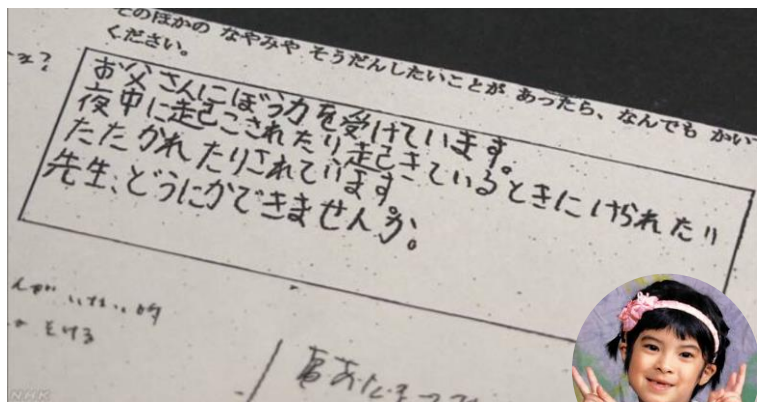 そのほかの なやみや そうだんしたいことが あったら、なんでも かいて
ください。
お父さんにぼう力を受けています。
夜中に起こされたり起きているときにけられたり
たたかれたりされています。
先生、どうにかできませんか。
NHK